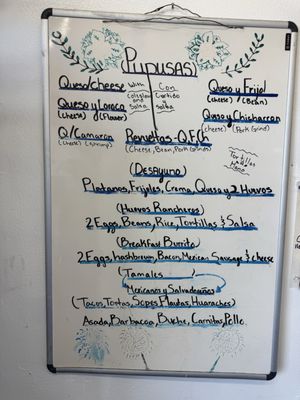 Pupusas
Queso/Cheese
with
Coleslaw
and
Salsa
Con
Curtido
y
Salsa
Queso y Frijol
(cheese) / (Bean)
Queso y Loroco
(cheese) (Flower)
Queso y Chicharron
(cheese) (Pork Grind)
Q/Camaron
(cheese) (shrimp)
Revueltas-Q.F.Ch
(Cheese, Bean, Pork Grind)
Tortillas
a
Mano
(Desayuno)
Platanos, Frijoles, Crema, Queso y 2 Huevos
(Huevos Rancheros)
2 Eggs, Beans, Rice, Tortillas & Salsa
(Breakfast Burrito)
2 Eggs, hashbrown, Bacon, Mexican Sausage & cheese
(Tamales)
Mexicanos y Salvadoreños
(Tacos, Tortas, Sopes, Flautas, Huaraches)
Asada, Barbacoa, Buche, Carnitas, Pollo